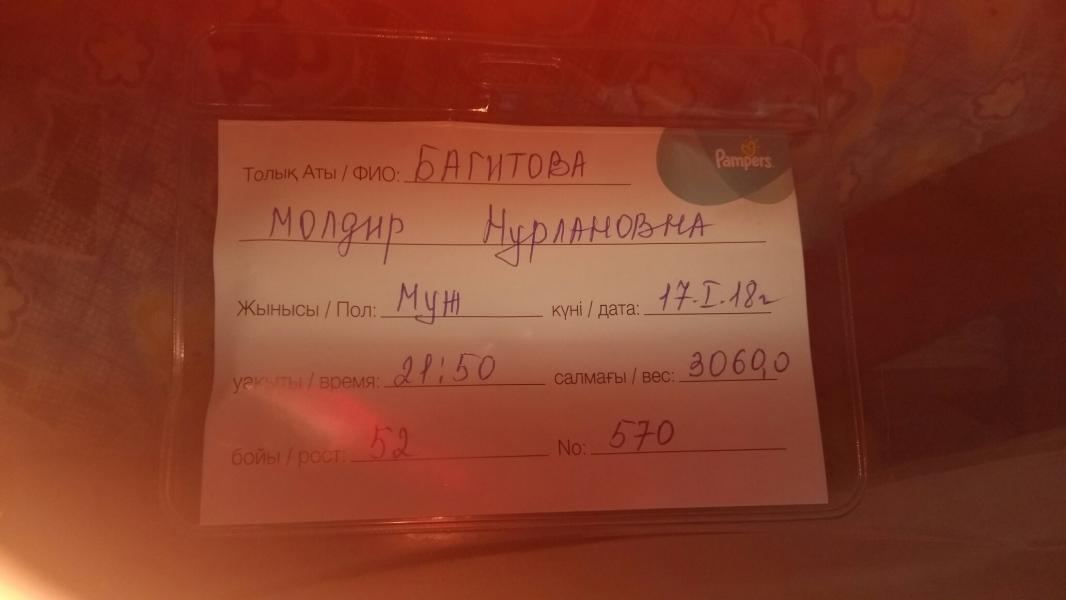 Pampers
Толық Аты / ФИО: БАГИТОВА
Молдир Нурлановна
Жынысы / Пол: Муж күні / дата: 17.I.18г
уақыты / время: 21:50 салмағы / вес: 3060,0
бойы / рост: 52 No: 570